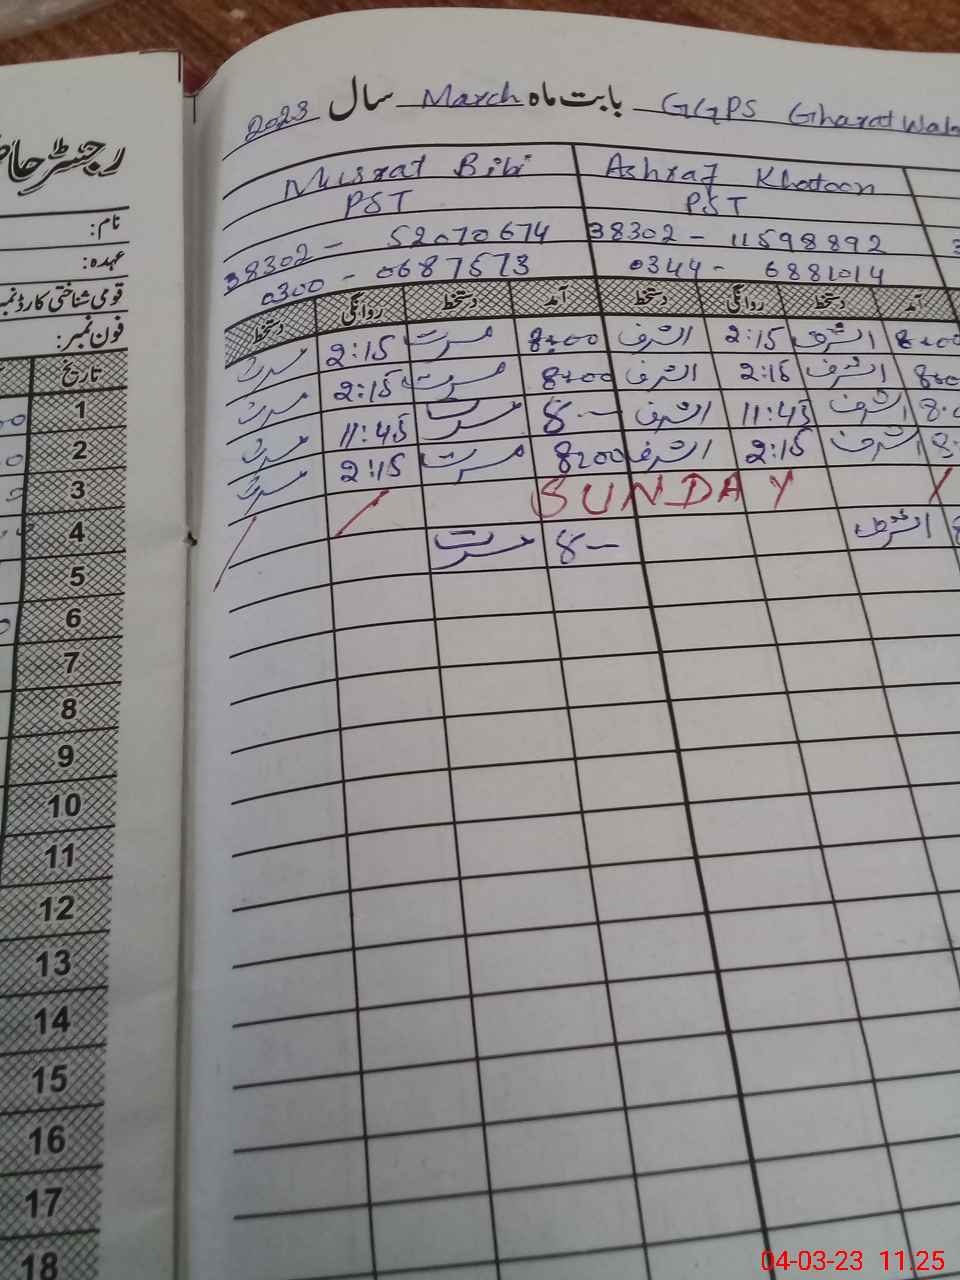 رجسٹر حا
نام:
عہدہ:
قومی شناختی کارڈ نمبر
فون نمبر:
تاریخ
1
2
3
4
5
6
7
8
9
10
11
12
13
14
15
16
17
18
GGPS Gharat Wala بابت ماہ March سال 2023
Musrat Bibi Ashraf Khatoon
PST PST
38302 - 52070674 38302 - 11598892
0300 - 0687573 0344 - 6881014
آمد دستخط روانگی دستخط آمد دستخط روانگی دستخط
8:00 اشرف 2:15 اشرف 8:00 مسرت 2:15 مسرت
8:00 اشرف 2:15 اشرف 8:00 مسرت 2:15 مسرت
8:0 اشرف 11:45 اشرف 8:— مسرت 11:45 مسرت
8: اشرف 2:15 اشرف 8:00 مسرت 2:15 مسرت
SUNDAY
8 اشرف 8:— مسرت
04-03-23 11.25